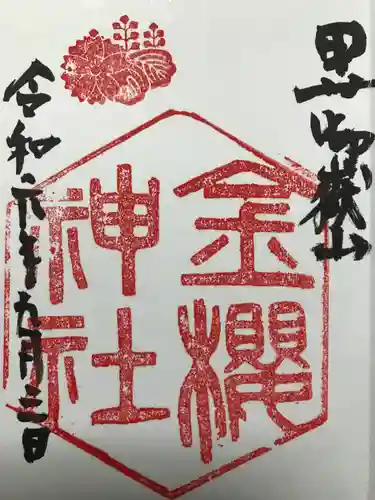 甲斐御嶽山
金櫻
神社
令和元年九月三日